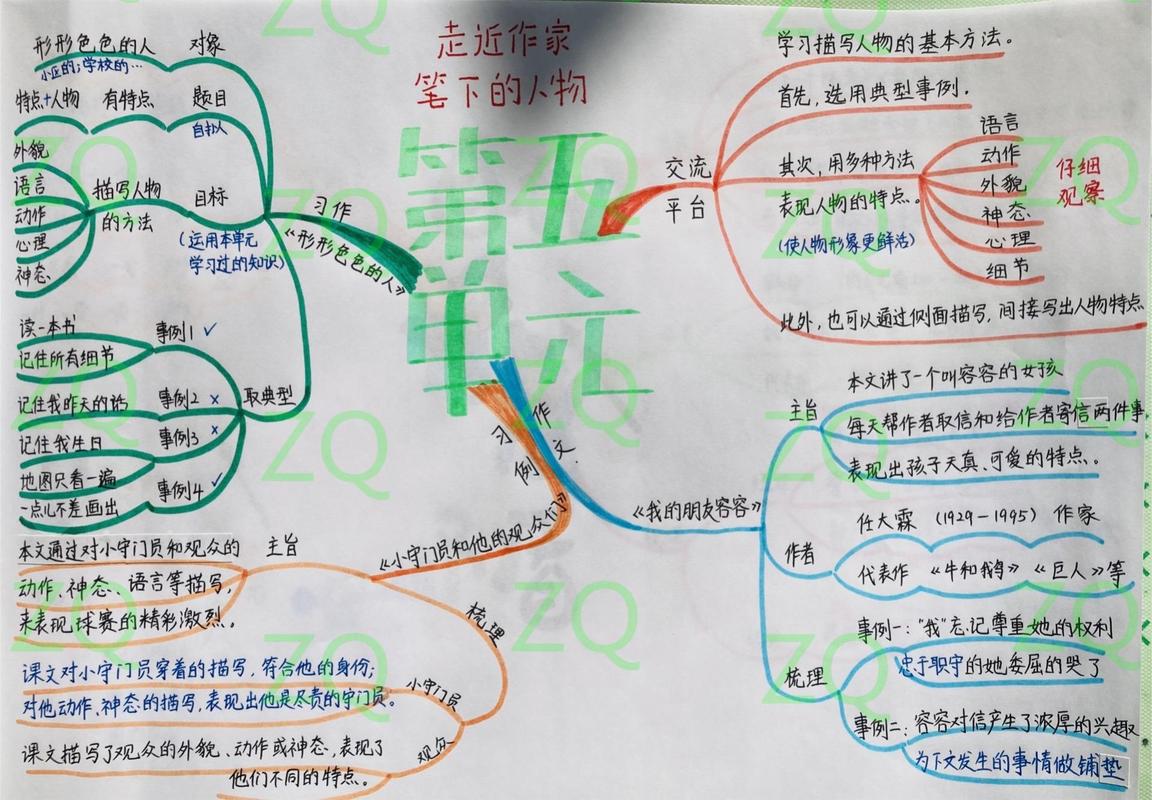 走近作家
笔下的人物
第五
单元
交流
平台
学习描写人物的基本方法。
首先，选用典型事例。
其次，用多种方法
表现人物的特点。
(使人物形象更鲜活)
语言
动作
外貌
神态
心理
细节
仔细
观察
此外，也可以通过侧面描写，间接写出人物特点
习作
《形形色色的人》
对象
形形色色的人
小区的；学校的…
题目
自拟
有特点
特点+人物
目标
(运用本单元
学习过的知识)
描写人物
的方法
外貌
语言
动作
心理
神态
取典型
事例1 ✓
读一本书
记住所有细节
事例2 ×
记住我昨天的话
事例3 ×
记住我生日
事例4 ✓
地图只看一遍
一点儿不差画出
习作
例文
《小守门员和他的观众们》
主旨
本文通过对小守门员和观众的
动作、神态、语言等描写，
来表现球赛的精彩激烈。
梳理
小守门员
课文对小守门员穿着的描写，符合他的身份；
对他动作、神态的描写，表现出他是尽责的守门员。
观众
课文描写了观众的外貌、动作或神态，表现了
他们不同的特点。
《我的朋友容容》
主旨
本文讲了一个叫容容的女孩
每天帮作者取信和给作者寄信两件事，
表现出孩子天真、可爱的特点。
作者
任大霖（1929-1995）作家
代表作《牛和鹅》《巨人》等
梳理
事例一："我"忘记尊重她的权利
忠于职守的她委屈的哭了
事例二：容容对信产生了浓厚的兴趣
为下文发生的事情做铺垫
ZQ
ZQ
ZQ
ZQ
ZQ
ZQ
ZQ
ZQ
ZQ
ZQ
ZQ
ZQ